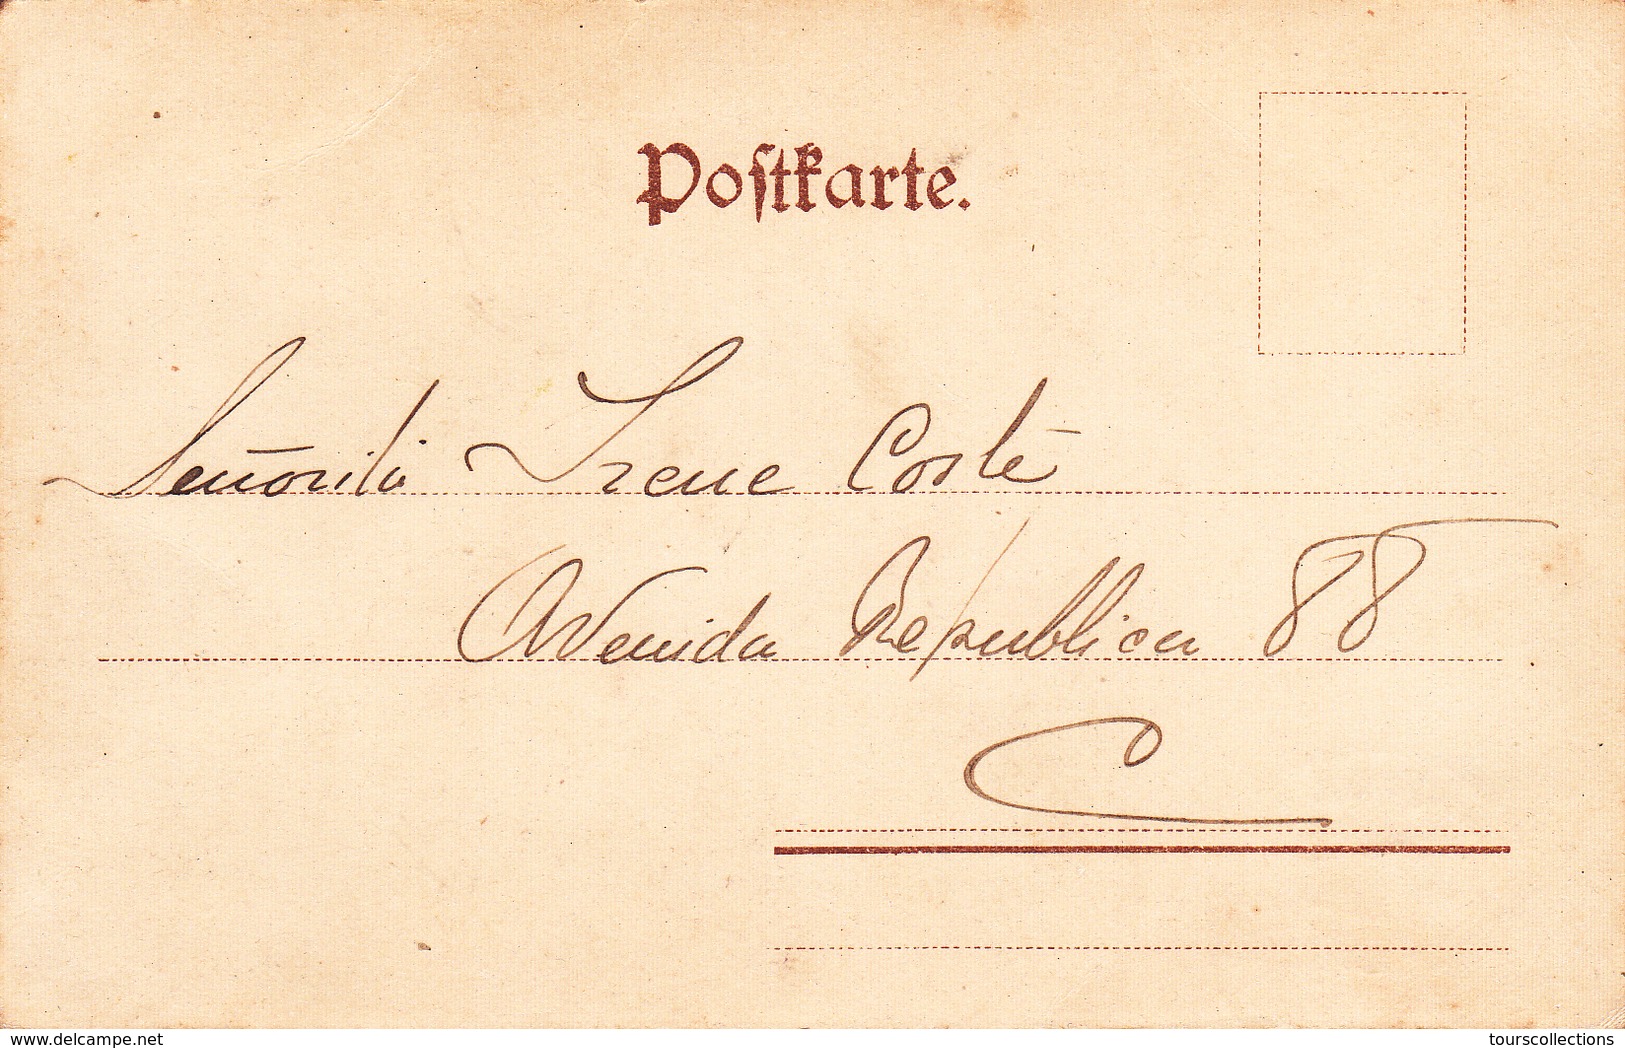 Postkarte.
Señorita Irene Costé
Avenida Republica 88
C
www.delcampe.net
tourscollections